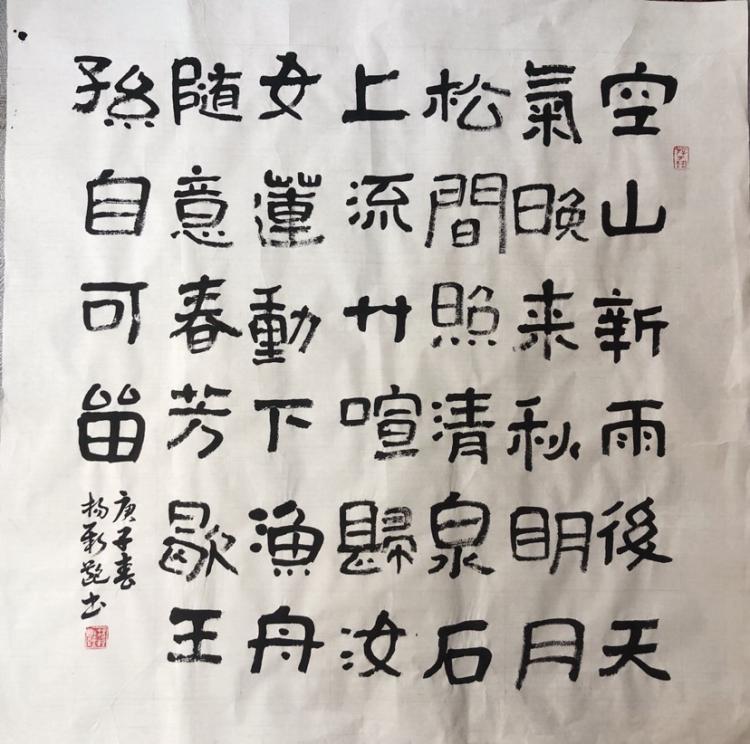 空山新雨後天
氣晚来秋眀月
松間照清泉石
上流竹喧歸汝
女蓮動下漁舟
随意春芳歇王
孫自可留
庚子春
杨书